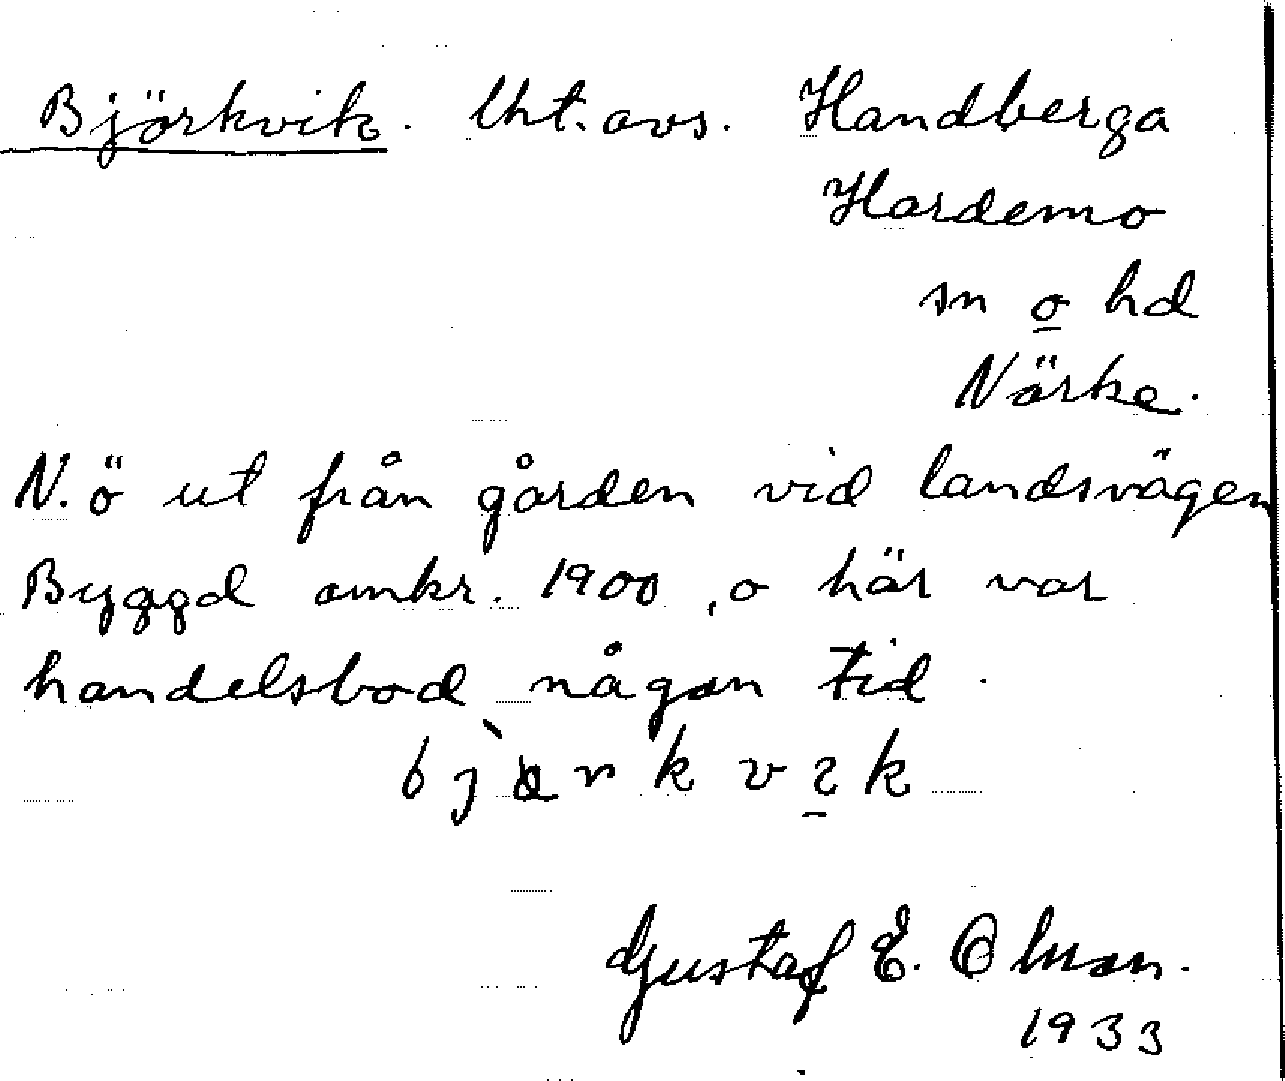 Björkvik. Lht. avs. Handberga
Hardemo
sn o hd
Närke.
N. ö ut från gården vid landsvägen
Byggd omkr. 1900, o här var
handelsbod någon tid.
k v
Gustaf E. Olman.
1933